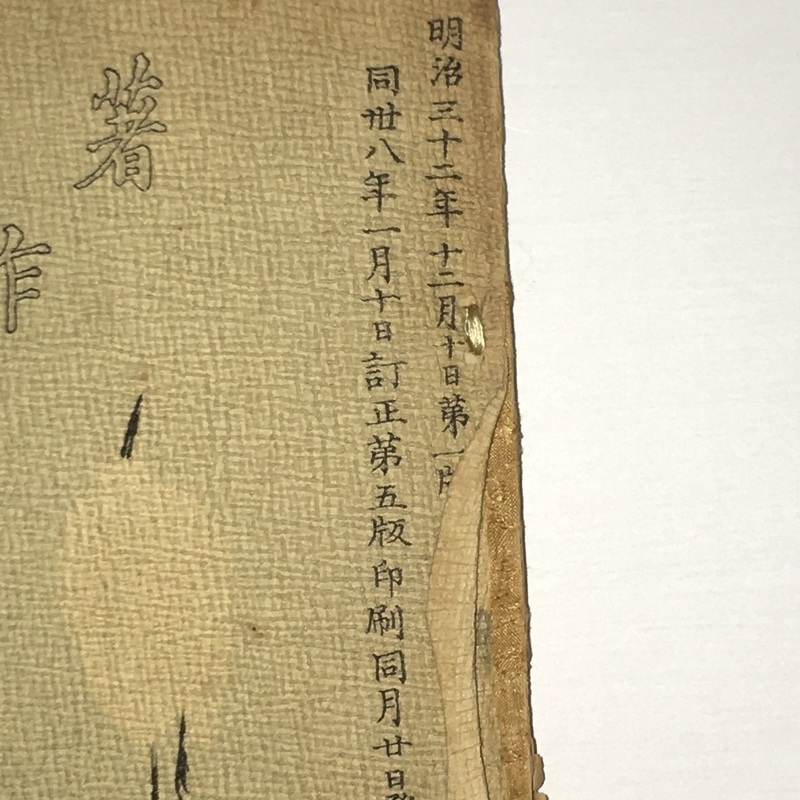 明治三十二年十二月十日第一版
同丗八年一月十日訂正第五版印刷同月廿日發
著
作